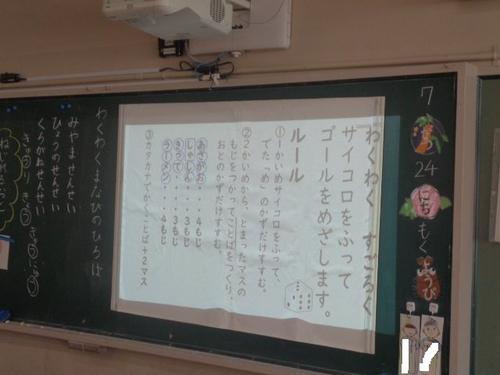 7
がつ
24
にち
もく
ようび
わくわく すごろく
サイコロをふって
ゴールをめざします。
ルール
①1かいめサイコロをふって、
でた「め」のかずだけすすむ。
②2かいめから、とまったマスの
もじをつかってことばをつくり、
おとのかずだけすすむ。
あさがお・・・4もじ
しゃしん・・・3もじ
きって・・・3もじ
ラーメン・・・4もじ
③カタカナでかくことば+2マス
わくわくまなびのひろば
みやませんせい
ひょうのせんせい
くろがねせんせい